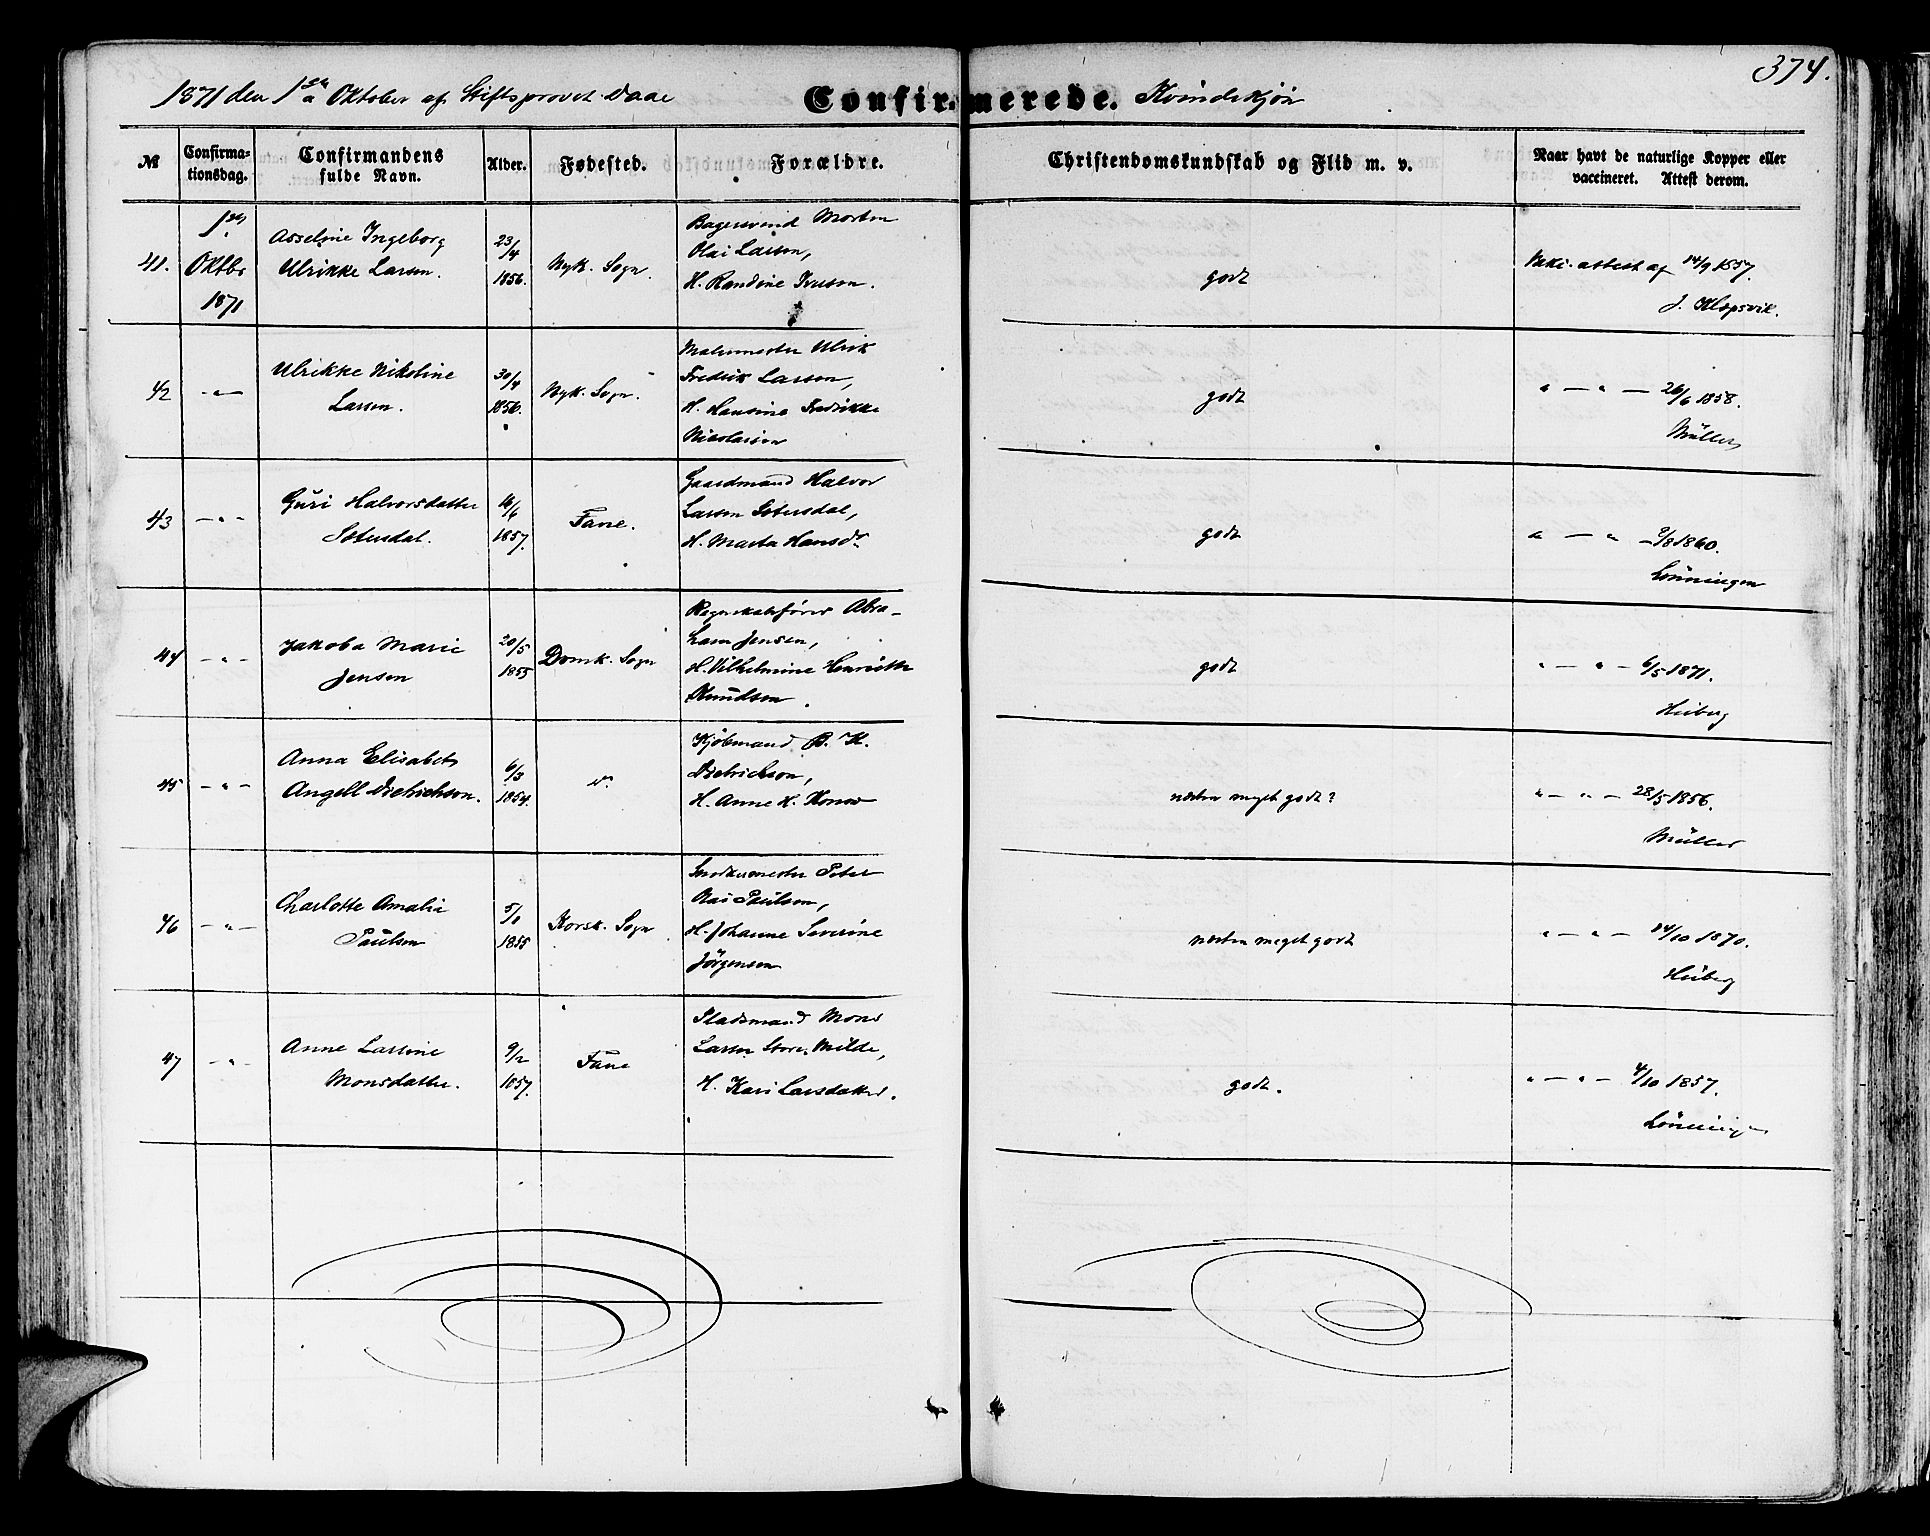 374.
1871 den 1ste Oktober af Stiftsprovst Daae
Confirmerede. Kvindekjøn
№ Confirmationsdag. Confirmandens fulde Navn. Alder. Fødested. Forældre. Christendomskundskab og Flid m. v. Naar havt de naturlige Kopper eller vaccineret. Attest derom.
41. 1ste Oktbr 1871
Asseline Ingeborg
Ulrikke Larsen.
23/4 1856.
Nyk. Sogn.
Bagersvend Morten
Olai Larsen,
H. Randine Iversen.
godt
Vakc. attest af 14/9 1857.
J. Klopsvik.
42 — " —
Ulrikke Nikoline
Larsen.
30/4 1856.
Nyk. Sogn.
Malermester Ulrik
Fredrik Larsen,
H. Hansine Fredrikke
Nicolaisen
godt
" — " — 26/6 1858.
Müller
43 — " —
Guri Halvorsdatter
Stensdal.
16/6 1857.
Fane.
Gaardmand Halvor
Larsen Stensdal,
H. Marta Hansdr
godt
" — " — 9/8 1860.
Lönningen
44 — " —
Jakoba Marie
Jensen
20/5 1855
Domk. Sogn
Regnskabsfører Abra-
ham Jensen,
H. Vilhelmine Henriette
Knudsen.
godt
" — " — 6/5 1871.
Heiberg
45 — " —
Anna Elisabet
Angell Dietrichson.
6/3 1854.
do
Kjøbmand B. K.
Dietrichson,
H. Anne H. Konow
næsten meget godt?
" — " — 28/5 1856.
Müller
46 — " —
Charlotte Amalia
Paulsen
5/1 1855
Korsk. Sogn
Snedkermester Peter
Paulsen,
H. Johanne Severine
Jörgensen
næsten meget godt
" — " — 24/10 1870.
Heiberg
47 — " —
Anne Larsine
Monsdatter.
9/2 1857.
Fane
Pladsmand Mons
Larsen Store Milde,
H. Kari Larsdatter.
godt.
" — " — 4/10 1857.
Lönningen